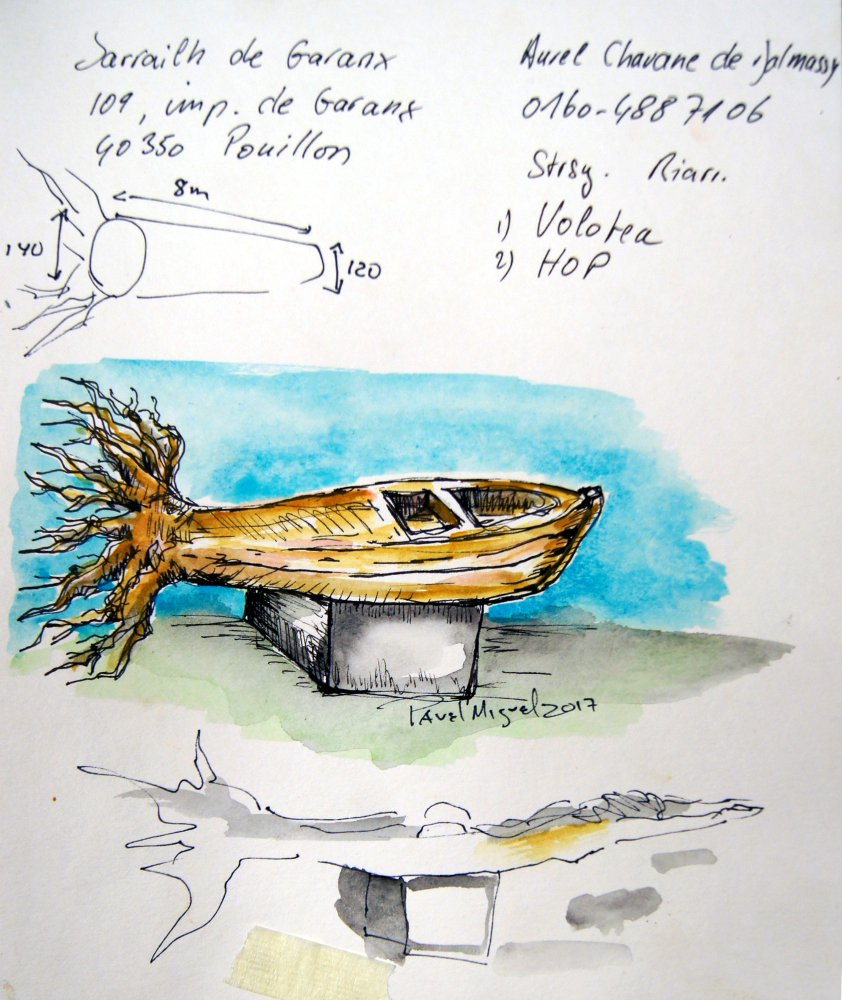 Jarrailh de Garanx
109, imp. de Garanx
40350 Pouillon
Aurel Chavane de
0160-4887106
Strsg.
1) Volotea
2) HOP
8m
140
120
Pavel Miguel 2017